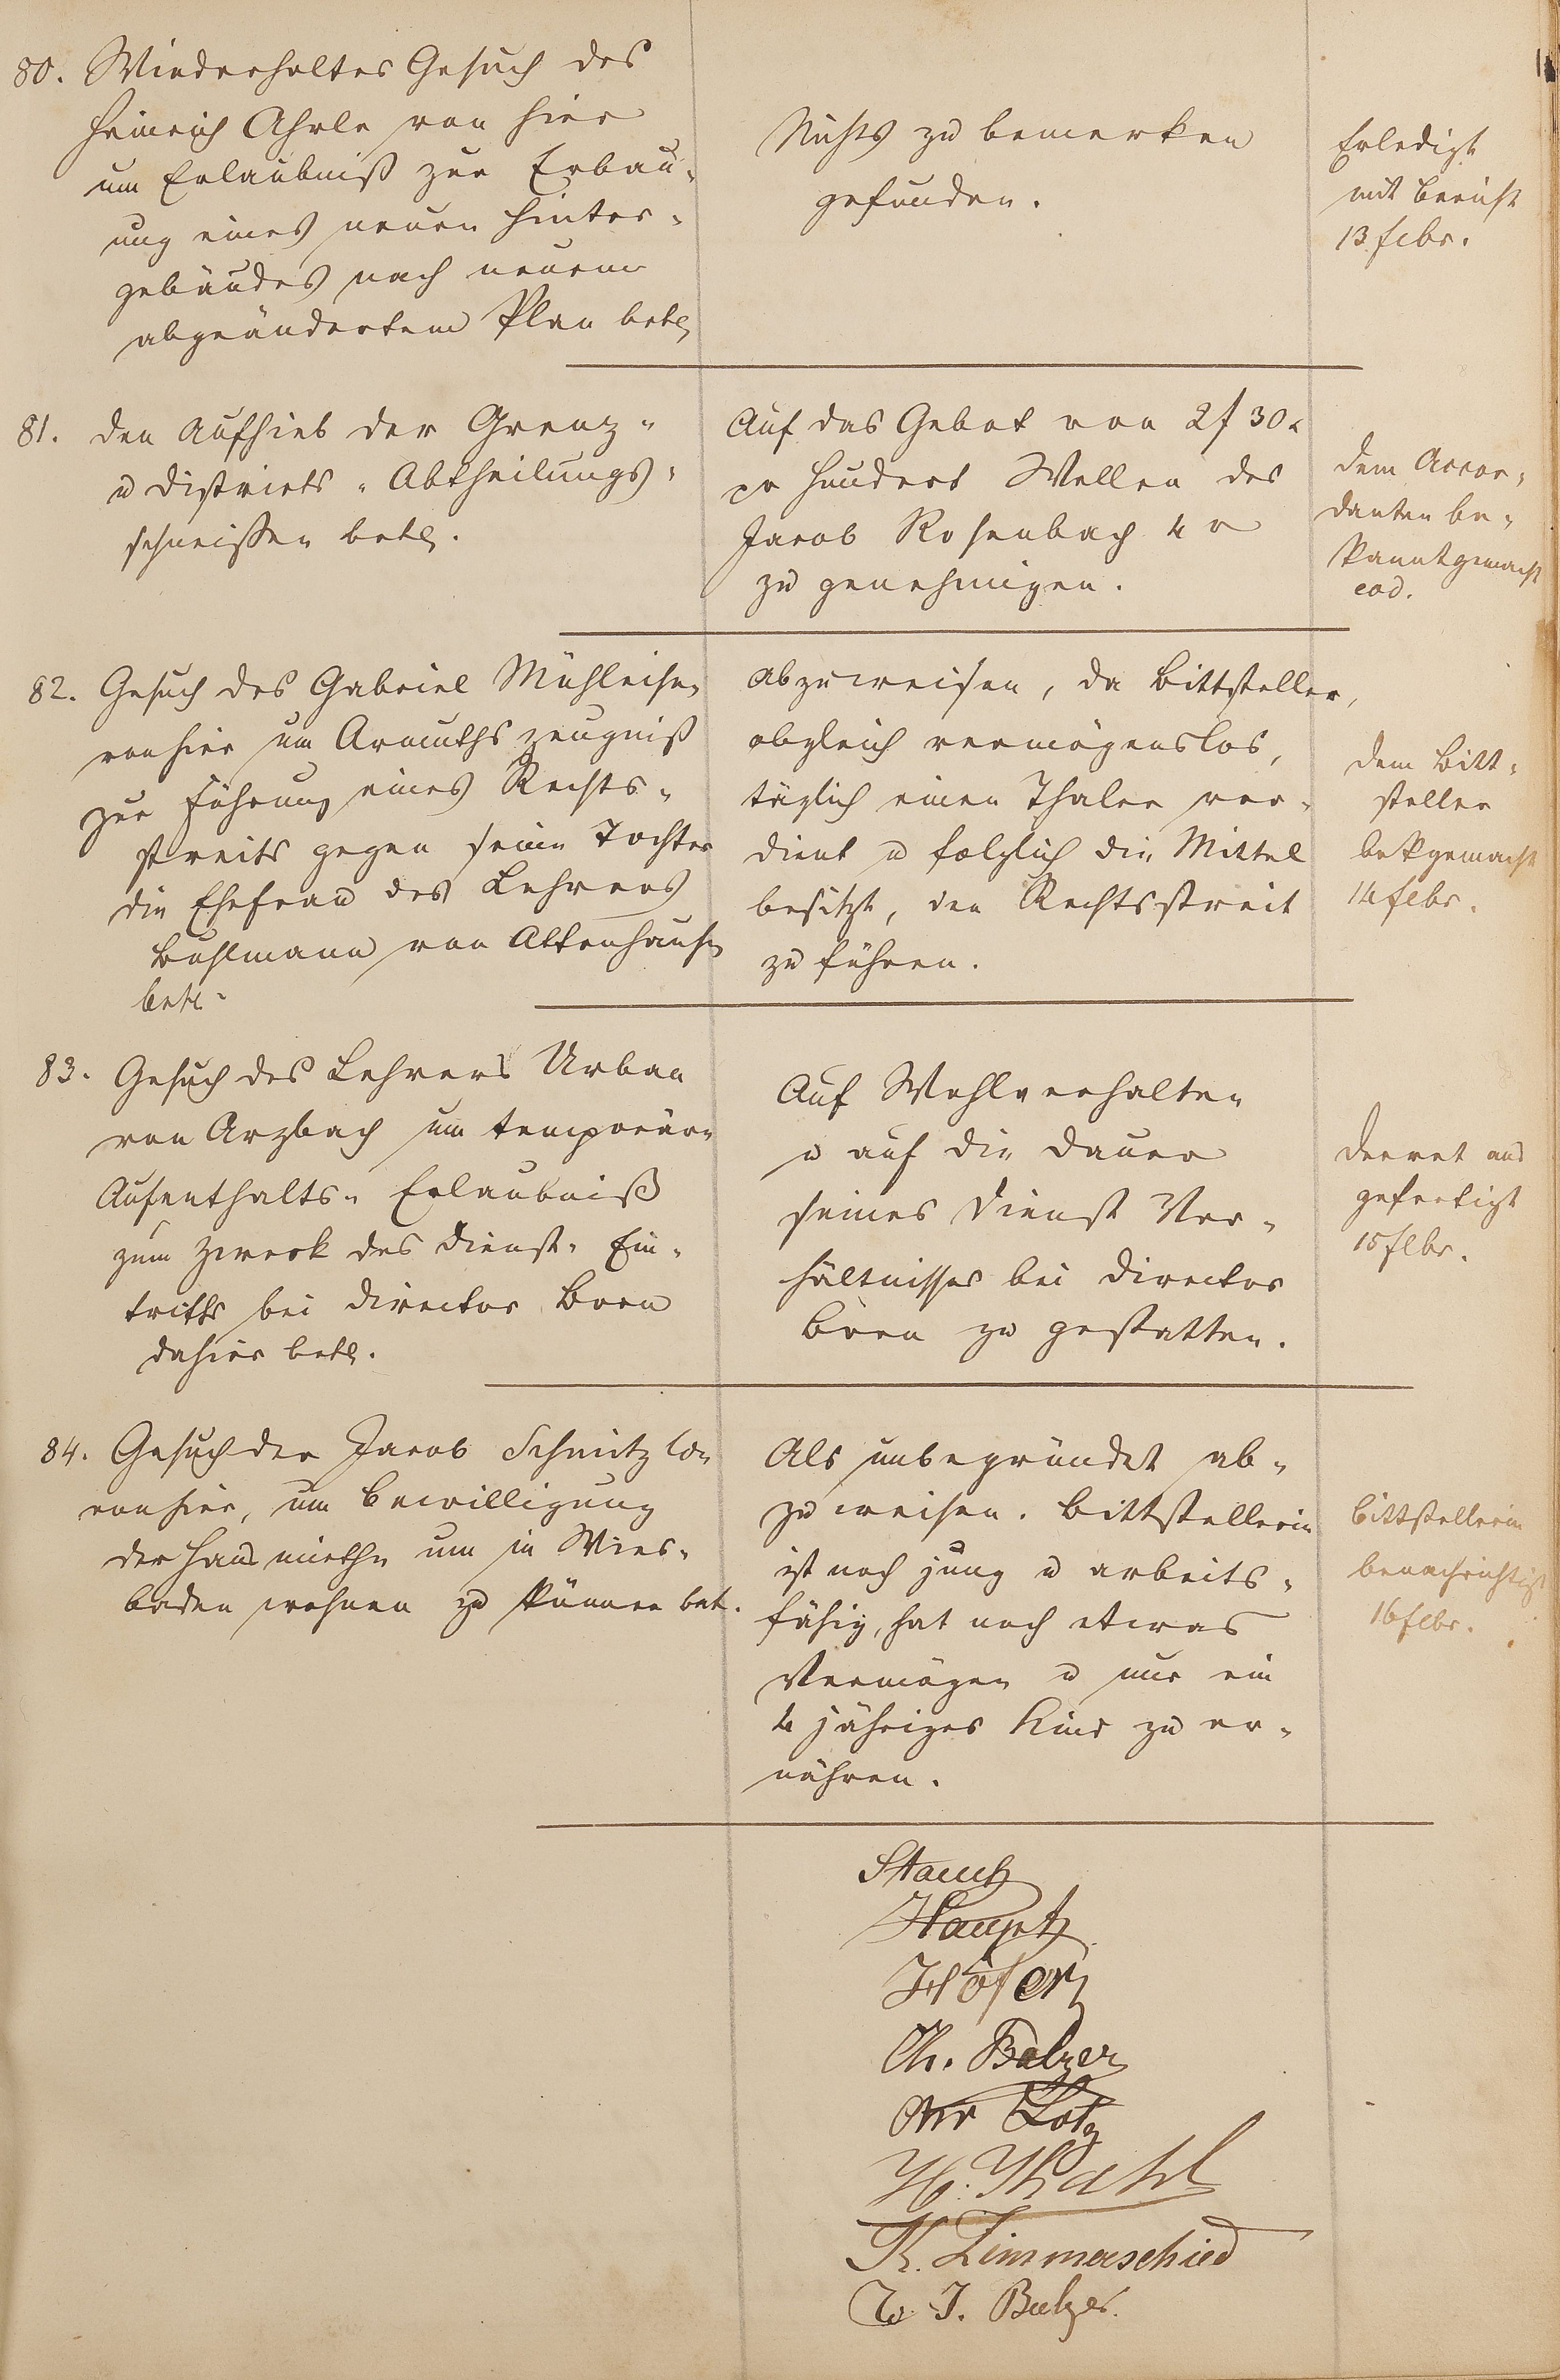 80. Wiederholtes Gesuch des
Heinrich Ahrle von hier
um Erlaubniß zur Erbau-
ung eines neuen Hinter-
gebäudes nach neuem
abgeändertem Plan betr.
Nichts zu bemerken
gefunden.
Erledigt
mit Bericht
13 febr.
81. Den Aufhieb der Grenz-
u Districts-Abtheilungs-
schneißen betr.
Auf das Gebot von 2 f 30 x
pr Hundert Wellen des
Jacob Rosenbach 4r
zu genehmigen.
Dem Accor-
danten be-
kanntgemacht
eod.
82. Gesuch des Gabriel Mühleisen
von hier um Armuthszeugniß
zur Führung eines Rechts-
streits gegen seine Tochter
die Ehefrau des Lehrers
Buhlmann von Attenhausen
betr.
Abzuweisen, da Bittsteller,
obgleich vermögenslos,
täglich einen Thaler ver-
dient u folglich die Mittel
besitzt, den Rechtsstreit
zu führen.
Dem Bitt-
steller
bekgemacht
14 febr.
83. Gesuch des Lehrers Urban
von Arzbach um temporären
Aufenthalts-Erlaubniß
zum Zweck des Dienst-Ein-
tritts bei Director Born
dahier betr.
Auf Wohlverhalten
u auf die Dauer
seines Dienst Ver-
hältnisses bei Director
Born zu gestatten.
Decret aus
gefertigt
15 febr.
84. Gesuch der Jacob Schmitz
von hier, um Bewilligung
der Hausmiethe um in Wies-
baden wohnen zu können bet.
Als unbegründet ab-
zuweisen. Bittstellerin
ist noch jung u arbeits-
fähig, hat noch etwas
Vermögen u nur ein
4 jähriges Kind zu er-
nähren.
Bittstellerin
benachrichtigt
16 febr.
Stauch
Haupt
Höfer
Ch. Balzer
Lotz
H. Thahl
K. Zimmerschied
W. J. Balzer.